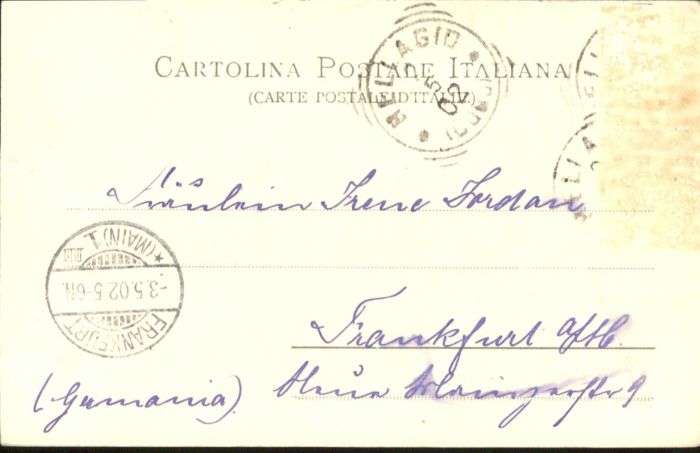 CARTOLINA POSTALE ITALIANA
(CARTE POSTALE D'ITALIE)
BELLAGIO
5
02
Fräulein Irene Jordan
FRANKFURT
-3.5.02.5-6N.
*(MAIN) 1.
Frankfurt a/M.
Neue Mainzerstr 9
(Germania)